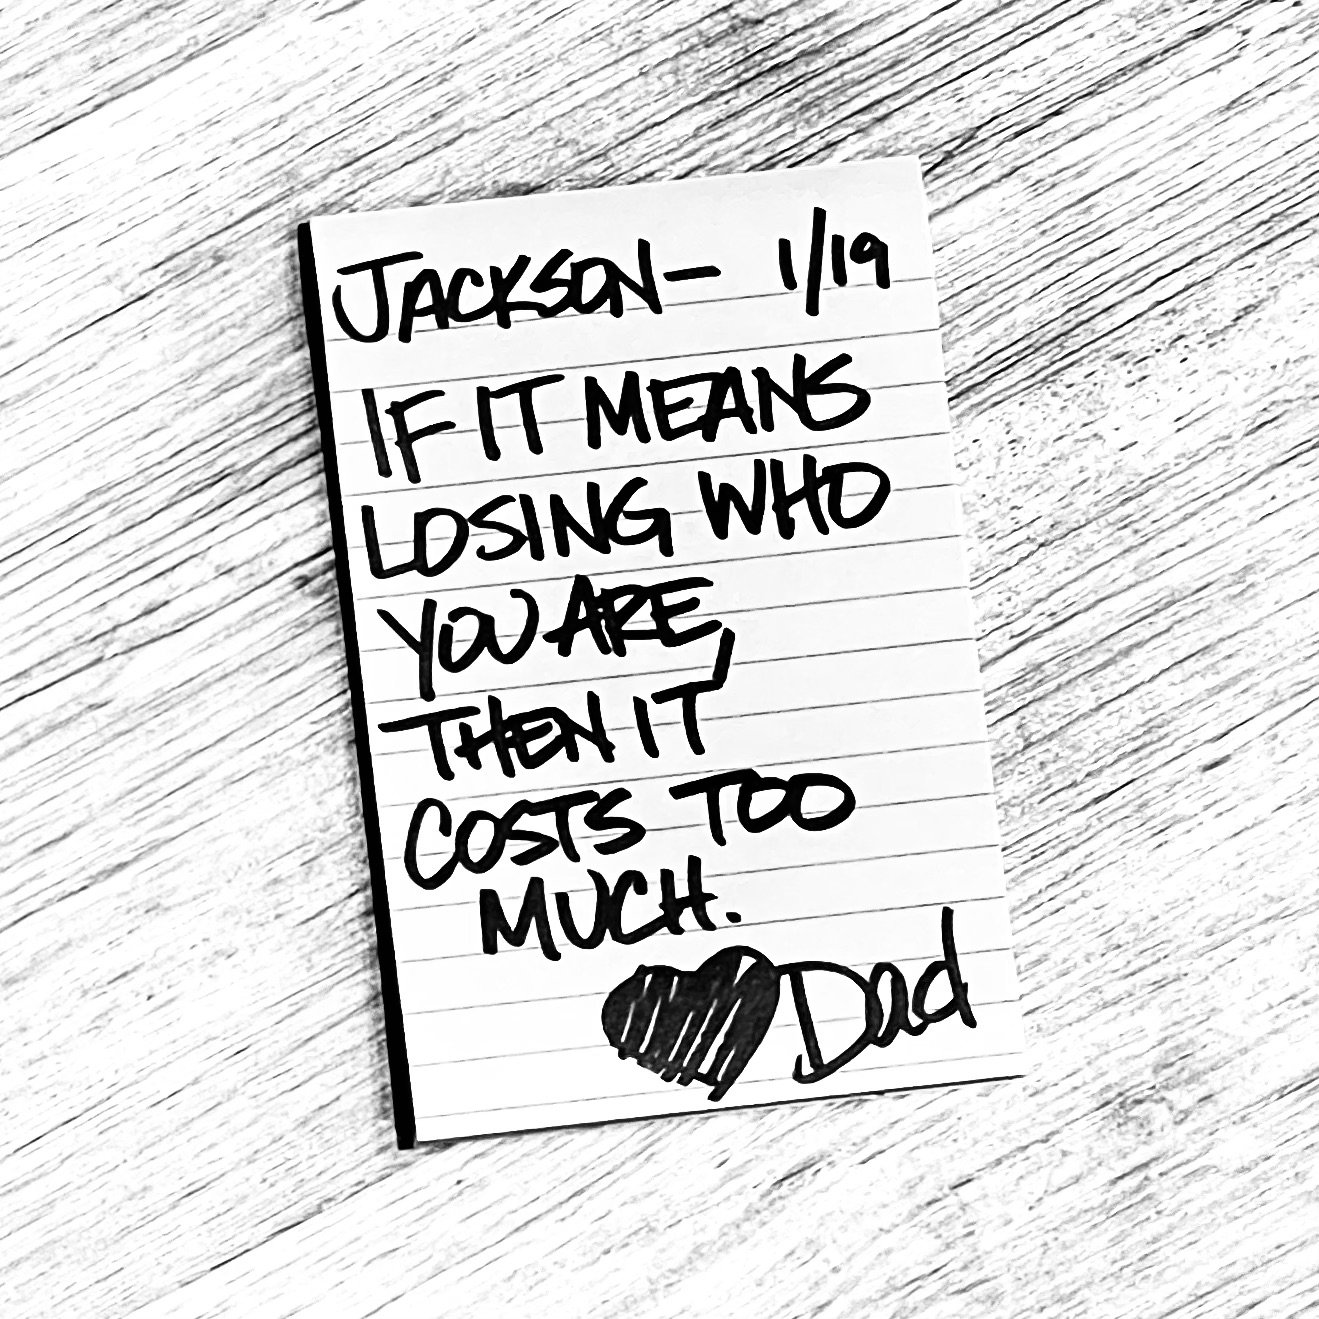 JACKSON— 1/19
IF IT MEANS
LOSING WHO
YOU ARE,
THEN IT
COSTS TOO
MUCH.
♥ Dad